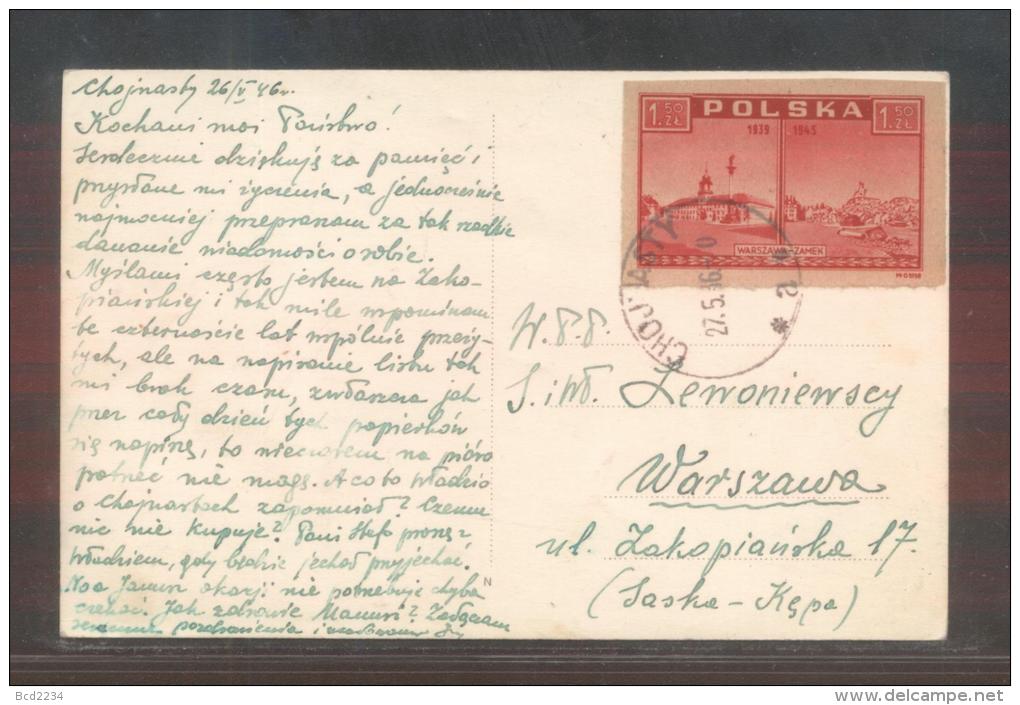 Chojnasty 26/V 46r.
Kochani moi Państwo!
Serdecznie dziękuję za pamięć i
przysłane mi życzenia, a jednocześnie
najmocniej przepraszam za tak rzadkie
dawanie wiadomości o sobie.
Myślami często jestem na Zako-
piańskiej i tak mile wspominam
te czternaście lat wspólnie przeży-
tych, ale na napisanie listu tak
mi brak czasu, zwłaszcza jak
przez cały dzień tych papierków
się napiszę, to wieczorem na pióro
patrzeć nie mogę. A co to Władzio
o Chojnastach zapomniał? Czemu
nic nie kupuje? Pani Stefo proszę z
Władziem, gdy będzie jechał przyjechać.
Na okazji nie potrzebuje chyba
czekać. Jak zdrowie Mamusi? Załączam
serdeczne pozdrowienia i
POLSKA
1.50 ZŁ
1.50 ZŁ
1939 1945
WARSZAWA-ZAMEK
CHOJNASTY
27.5.46
a
W.P.P.
S. i Wł. Lewoniewscy
Warszawa
ul. Zakopiańska 17.
(Saska-Kępa)
N
Bcd2234
delcampe.net